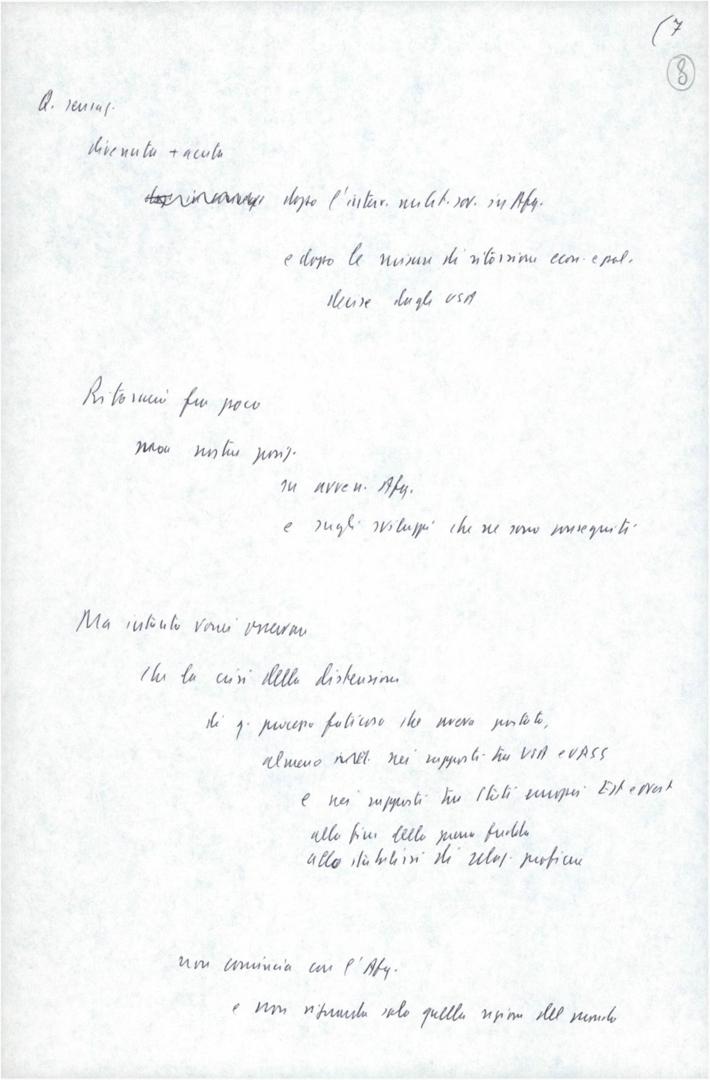 (7
8
Q. sensaz.
divenuta + acuta
dopo l'interv. milit. sov. in Afg.
e dopo le misure di ritorsione econ. e pol.
decise dagli USA
Ritornerò fra poco
nostra posiz.
su avven. Afg.
e sugli sviluppi che ne sono conseguiti
Ma intanto vorrei osservare
che la crisi della distensione
di q. processo faticoso che aveva portato,
almeno nei rapporti tra USA e URSS
e nei rapporti tra Stati europei Est e Ovest
alla fine della guerra fredda
allo stabilirsi di relaz. pacifiche
non comincia con l'Afg.
e non riguarda solo quella regione del mondo